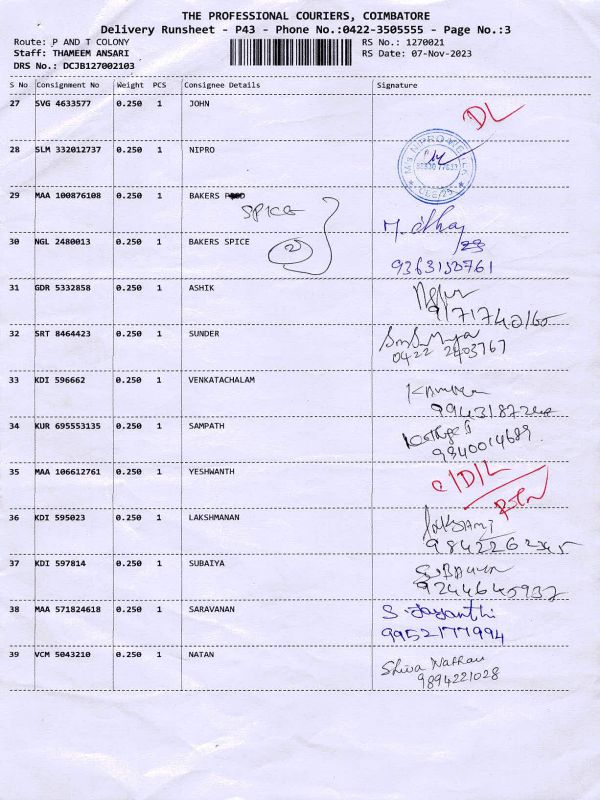 THE PROFESSIONAL COURIERS, COIMBATORE
Delivery Runsheet - P43 - Phone No.:0422-3505555 - Page No.:3
Route: P AND T COLONY
RS No.: 1270021
Staff: THAMEEM ANSARI
RS Date: 07-Nov-2023
DRS No.: DCJB127002103
S No Consignment No Weight PCS Consignee Details Signature
27 SVG 4633577 0.250 1 JOHN DL
28 SLM 332012737 0.250 1 NIPRO
29 MAA 100876108 0.250 1 BAKERS
SPICE
30 NGL 2480013 0.250 1 BAKERS SPICE
2
9363150761
31 GDR 5332858 0.250 1 ASHIK
32 SRT 8464423 0.250 1 SUNDER
0422 2403767
33 KDI 596662 0.250 1 VENKATACHALAM
34 KUR 695553135 0.250 1 SAMPATH
9840014689
35 MAA 106612761 0.250 1 YESHWANTH C/D/L
RTN
36 KDI 595023 0.250 1 LAKSHMANAN
9842262345
37 KDI 597814 0.250 1 SUBAIYA
9244645937
38 MAA 571824618 0.250 1 SARAVANAN S. Jayanthi
9952177994
39 VCM 5043210 0.250 1 NATAN Shiva Nathan
9894221028